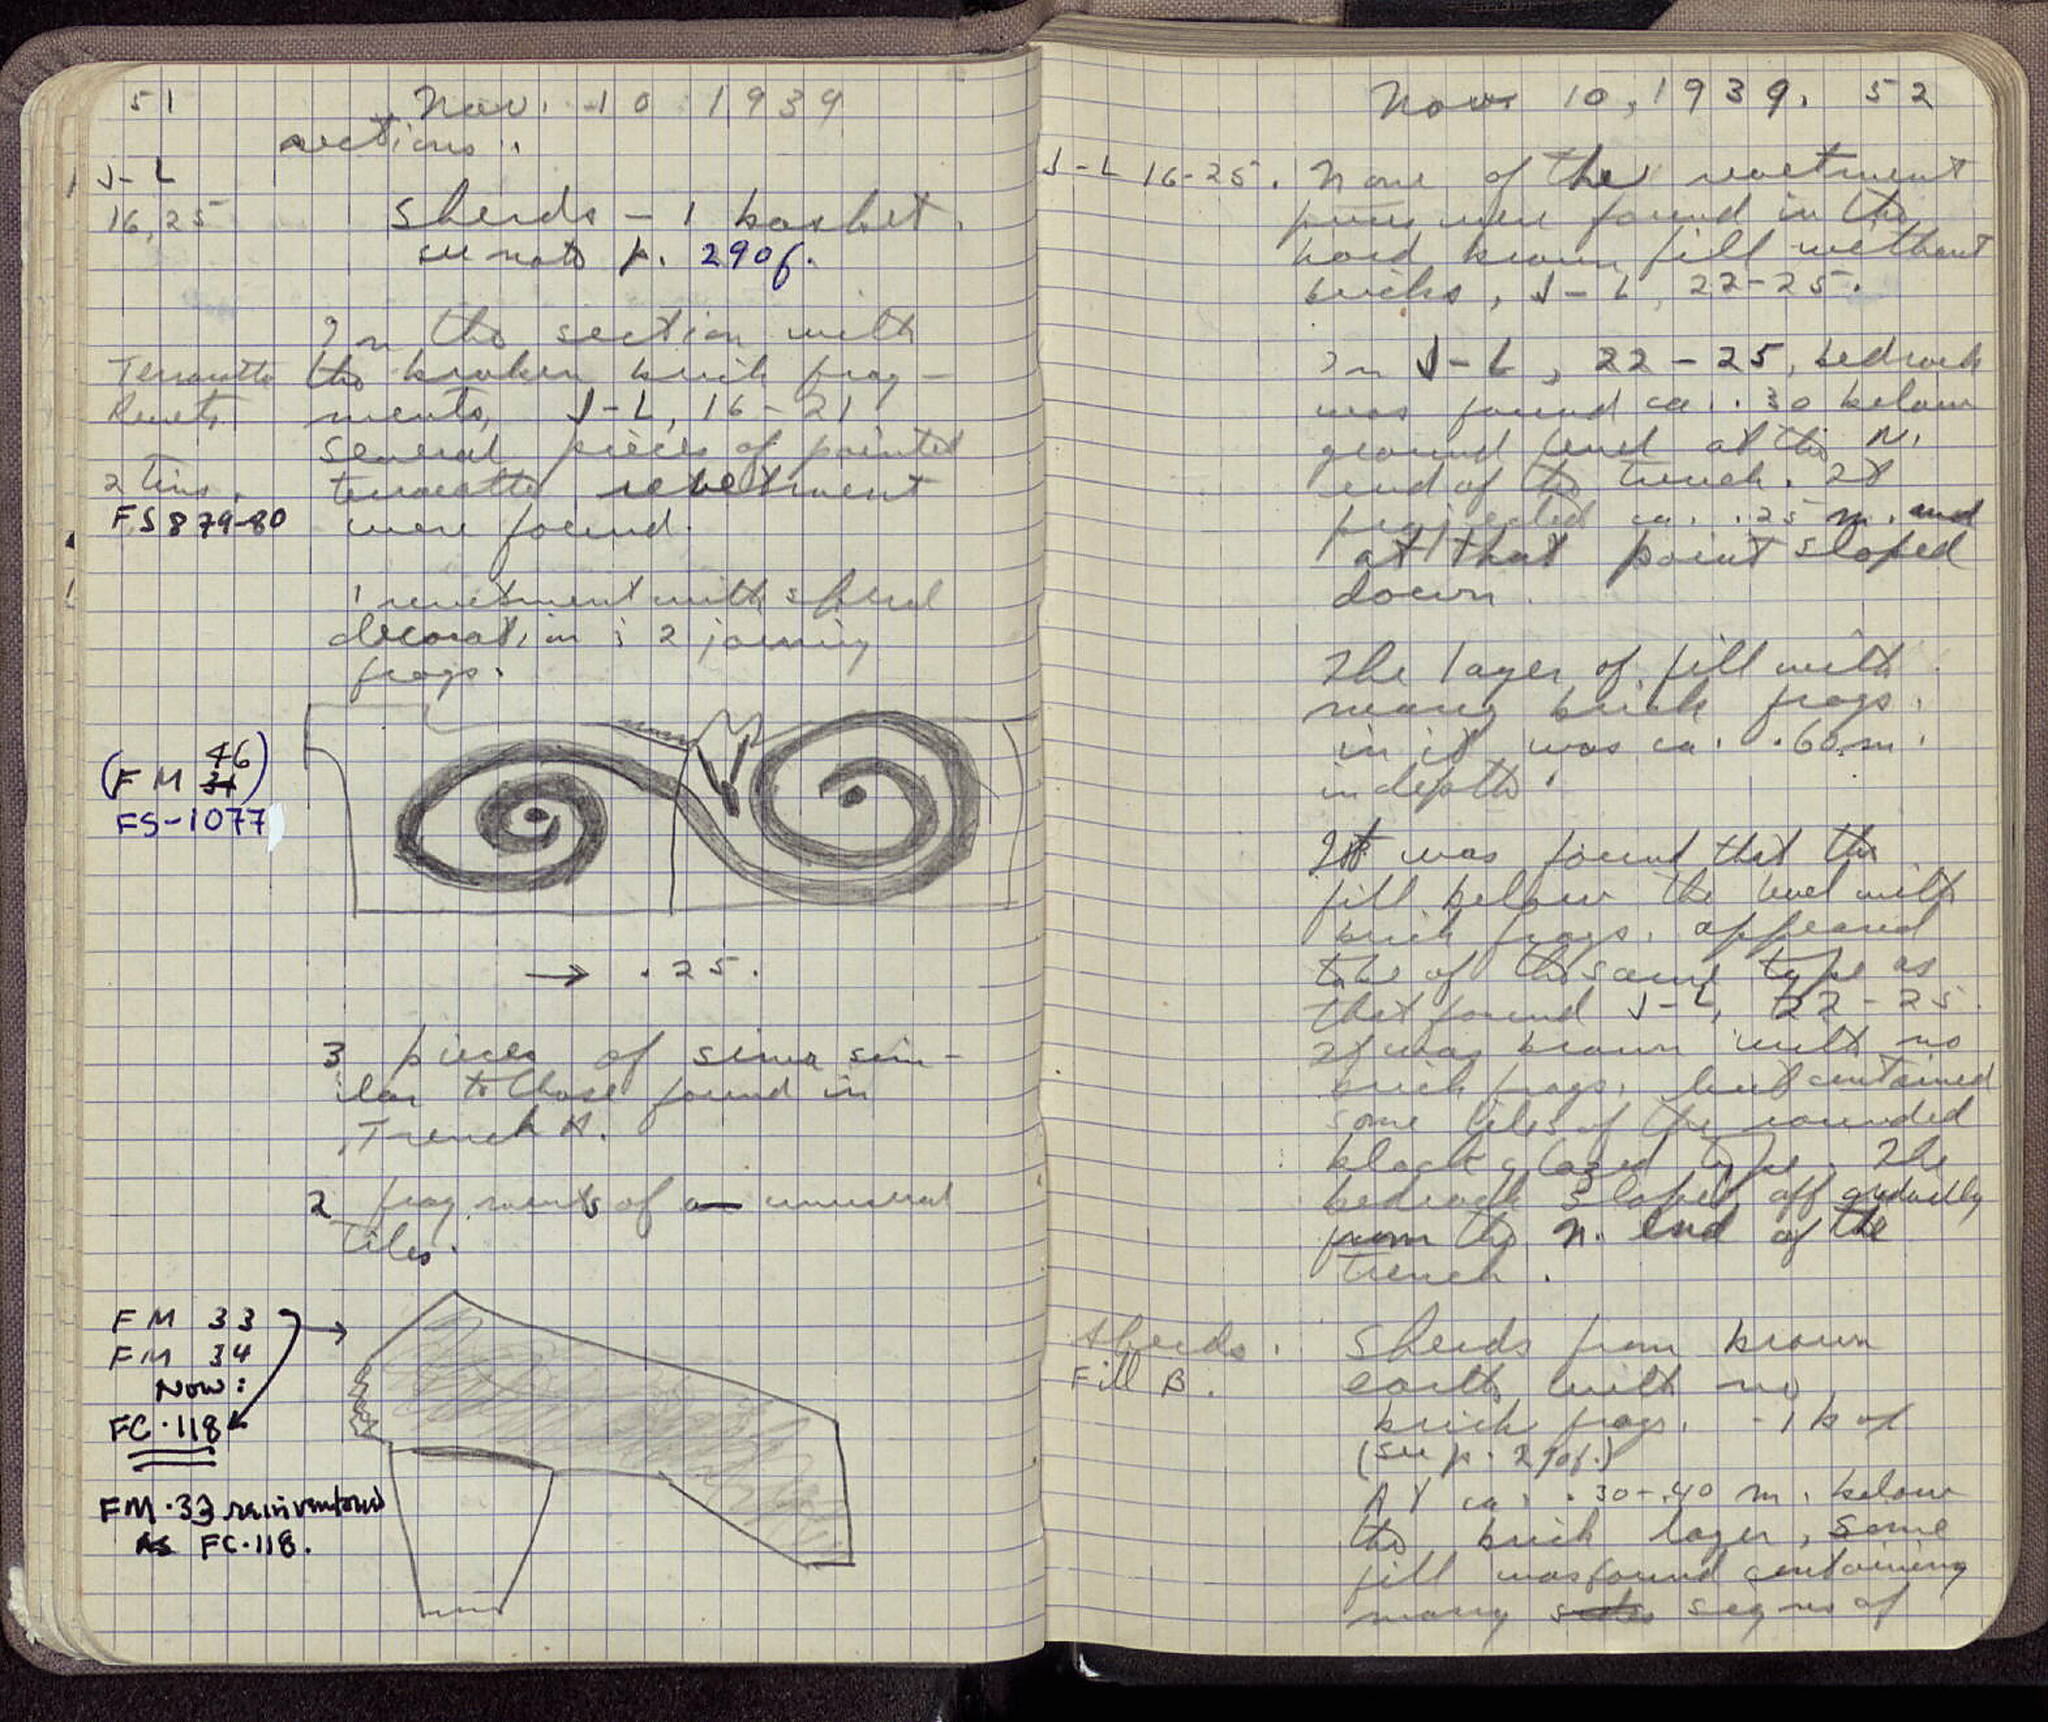 51
Nov. 10 1939
sections..
J-L
16, 25
Sherds - 1 basket.
see note p. 290f.
In the section with
Terracotta
the broken brick frag-
Revets,
ments, J-L, 16-21
several pieces of painted
2 tins.
terracotta revetment
FS 879-80
were found.
1 revetment with spiral
decoration; 2 joining
frags.
(FM 46 34)
FS-1077
→ .25.
3 pieces of sima sim-
ilar to those found in
Trench A.
2 fragments of a unusual
tiles.
FM 33
FM 34
NOW:
FC.118
FM.33 reinventoried
AS FC.118.
Nov 10, 1939. 52
J-L 16-25. None of the revetment
pieces were found in the
hard brown fill without
bricks, J-L, 22-25.
In J-L, 22-25, bedrock
was found ca. .30 below
ground level at the N.
end of the trench. It
projected ca. .25 m. and
at that point sloped
down.
The layer of fill with
many brick frags.
in it was ca. .60 m.
in depth.
It was found that the
fill below the level with
brick frags. appeared
to be of the same type as
that found J-L, 22-25.
It was brown with no
brick frags. but contained
some tiles of the rounded
black glazed type. The
bedrock sloped off gradually
from the n. end of the
trench.
Sherds.
Sherds from brown
Fill B.
earth with no
brick frags. - 1 bsk
(see p. 290f.)
At ca. .30-.40 m. below
the brick layer, some
fill was found containing
many signs of